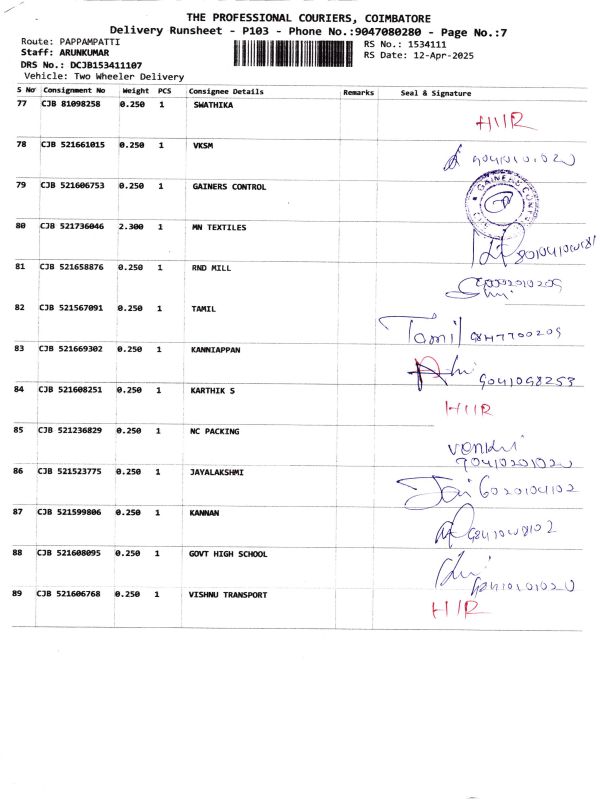 THE PROFESSIONAL COURIERS, COIMBATORE
Delivery Runsheet - P103 - Phone No.:9047080280 - Page No.:7
Route: PAPPAMPATTI
RS No.: 1534111
Staff: ARUNKUMAR
RS Date: 12-Apr-2025
DRS No.: DCJB153411107
Vehicle: Two Wheeler Delivery
S No Consignment No Weight PCS Consignee Details Remarks Seal & Signature
77 CJB 81098258 0.250 1 SWATHIKA
78 CJB 521661015 0.250 1 VKSM
79 CJB 521606753 0.250 1 GAINERS CONTROL
80 CJB 521736046 2.300 1 MN TEXTILES
81 CJB 521658876 0.250 1 RND MILL
82 CJB 521567091 0.250 1 TAMIL
Tamil 9847700209
83 CJB 521669302 0.250 1 KANNIAPPAN
9041098253
84 CJB 521608251 0.250 1 KARTHIK S
85 CJB 521236829 0.250 1 NC PACKING
86 CJB 521523775 0.250 1 JAYALAKSHMI
6020104102
87 CJB 521599806 0.250 1 KANNAN
88 CJB 521608095 0.250 1 GOVT HIGH SCHOOL
89 CJB 521606768 0.250 1 VISHNU TRANSPORT